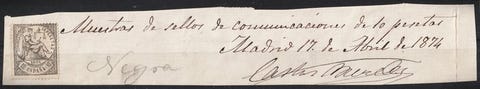 Muestras de sellos de comunicaciones de 10 pesetas
Madrid 17 de Abril de 1874
Negra
ESPAÑA